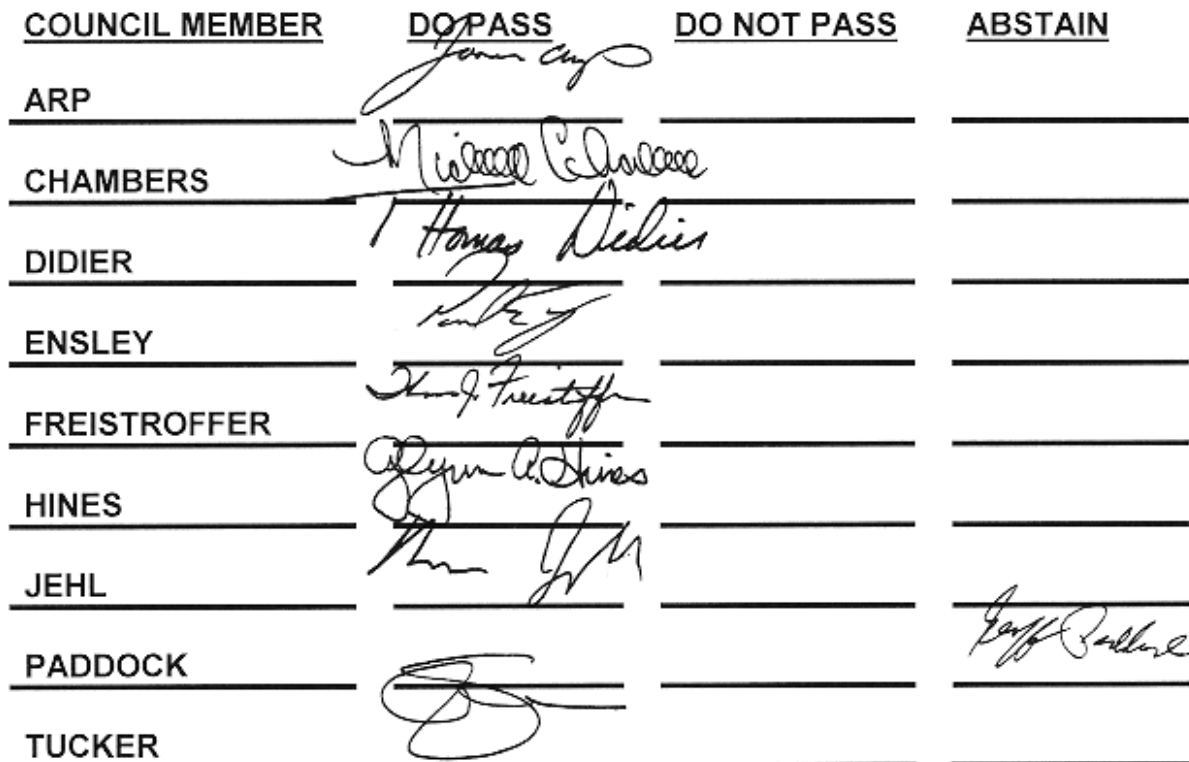 COUNCIL MEMBER DO PASS DO NOT PASS ABSTAIN
ARP
CHAMBERS
DIDIER Thomas Didier
ENSLEY
FREISTROFFER
HINES Glynn A. Hines
JEHL
PADDOCK Geoff Paddock
TUCKER